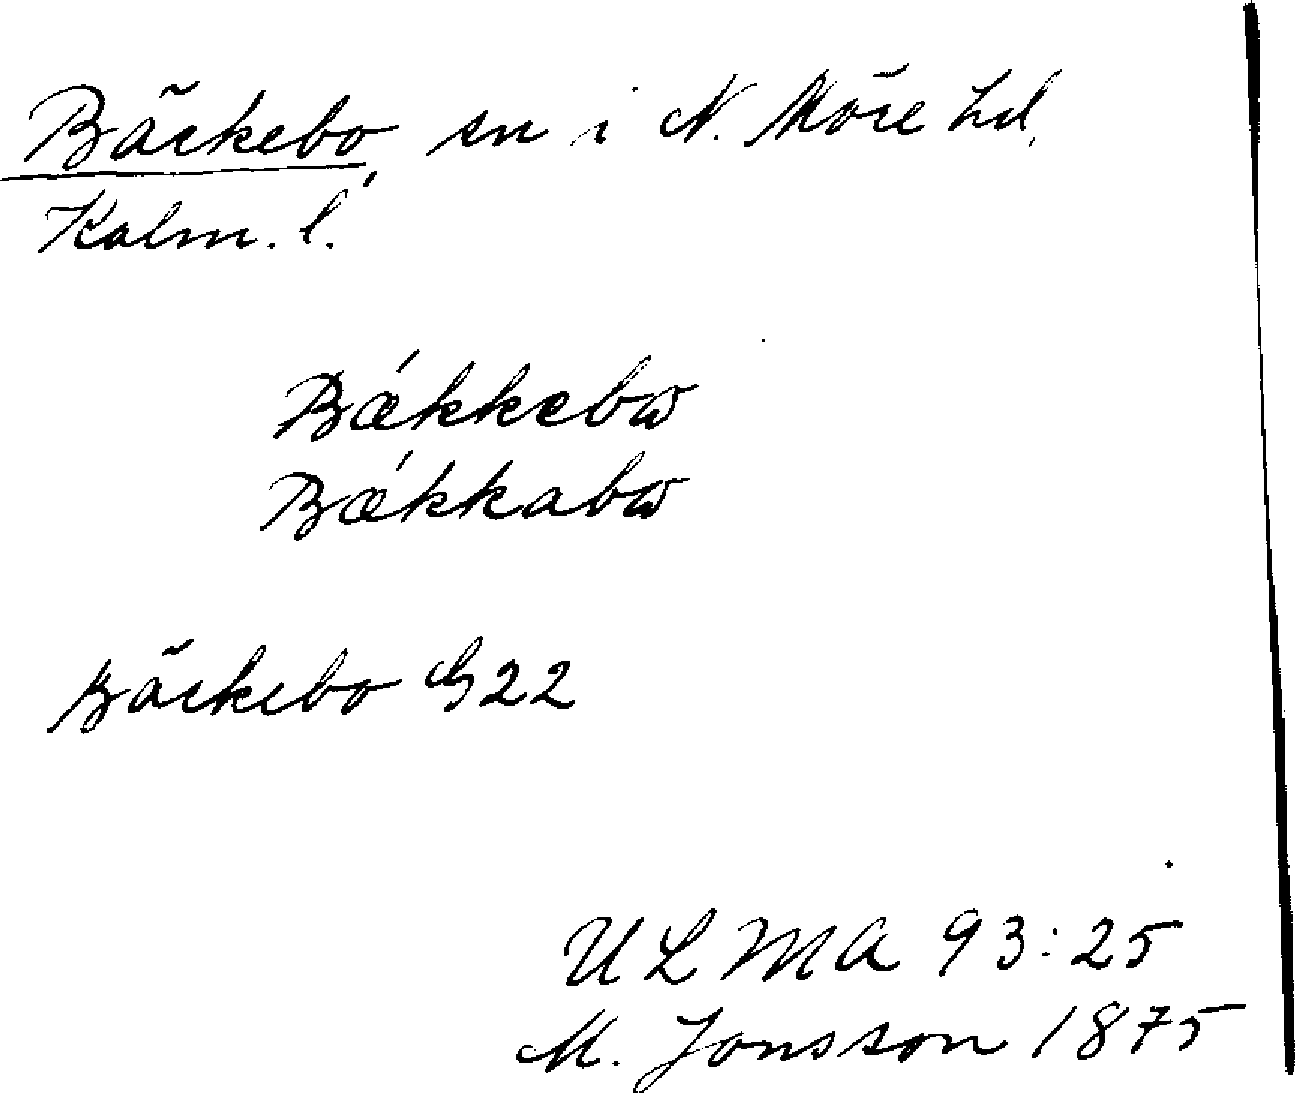 Bäckebo, sn i N. Möre hd,
Kalm. l.
Bǽkkebω
Bǽkkabω
Bäckebo G22
ULMA 93:25
M. Jonsson 1875